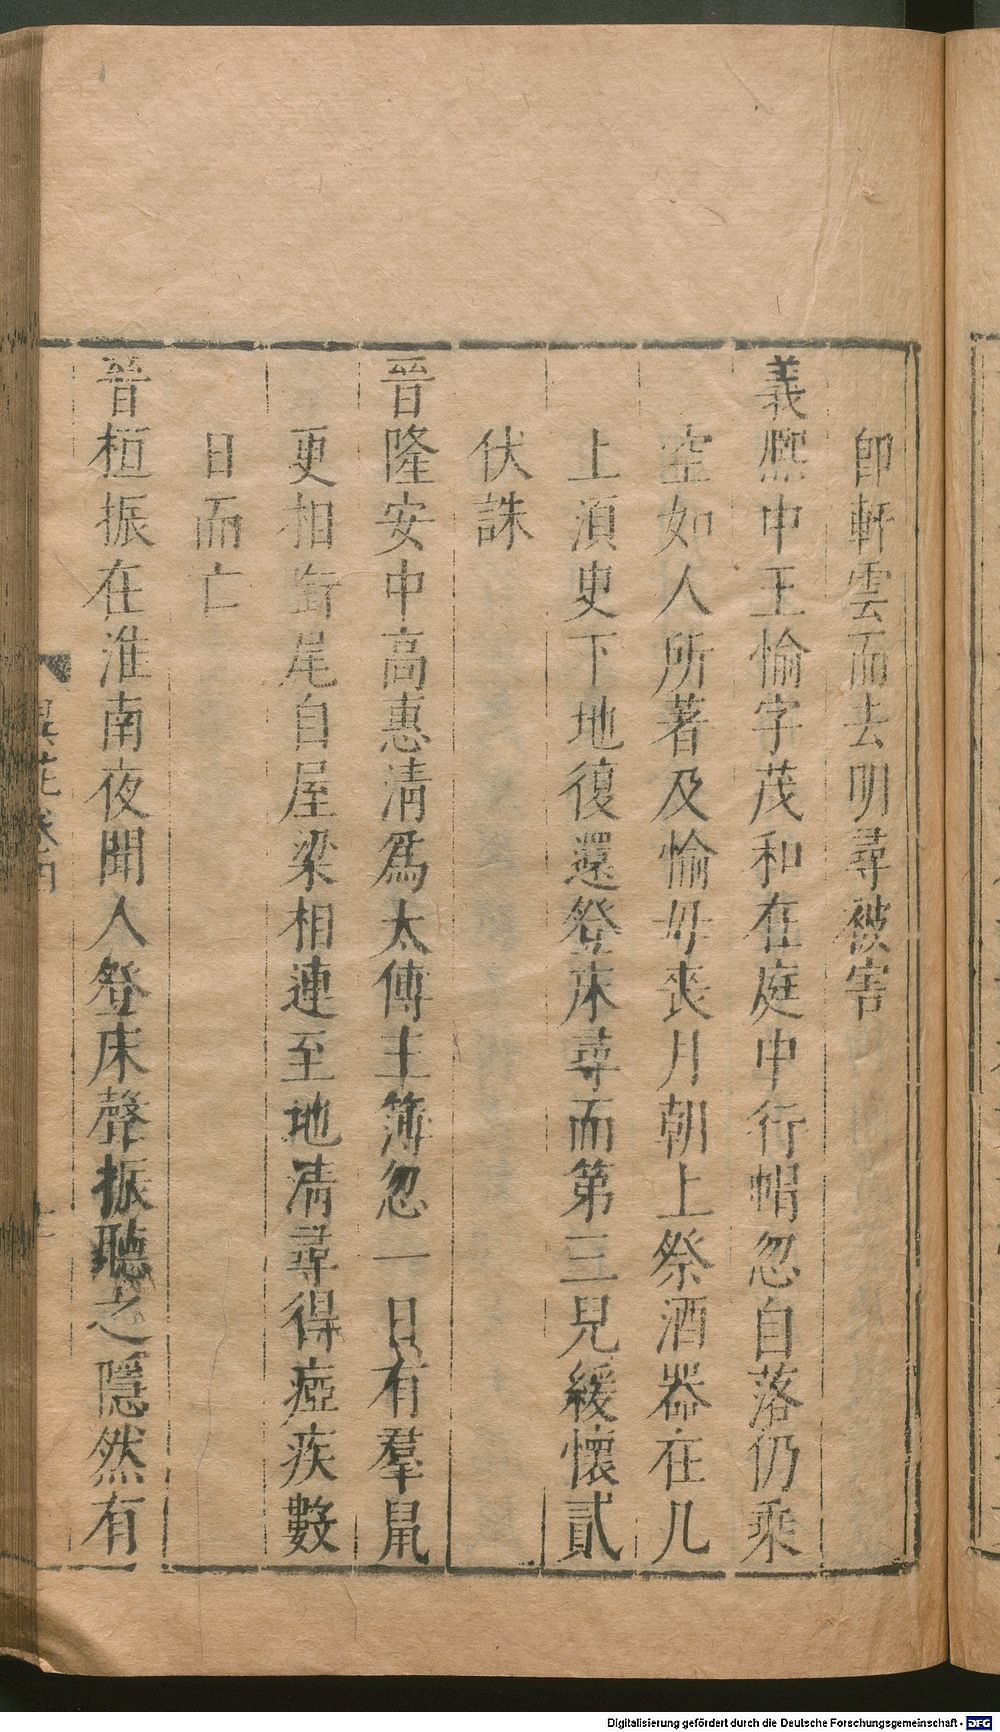 卽軒雲而去明尋被害
義熙中王愉字茂和在庭中行帽忽自落仍乘
空如人所著及愉母喪月朝上祭酒器在几
上須臾下地復還登床尋而第三兒緩懷貳
伏誅
晉隆安中高惠清爲太傅主簿忽一日有羣鼠
更相銜尾自屋梁相連至地清尋得瘂疾數
日而亡
晉桓振在淮南夜聞人登床聲振聽之隱然有
異苑卷四
Digitalisierung gefördert durch die Deutsche Forschungsgemeinschaft - DFG